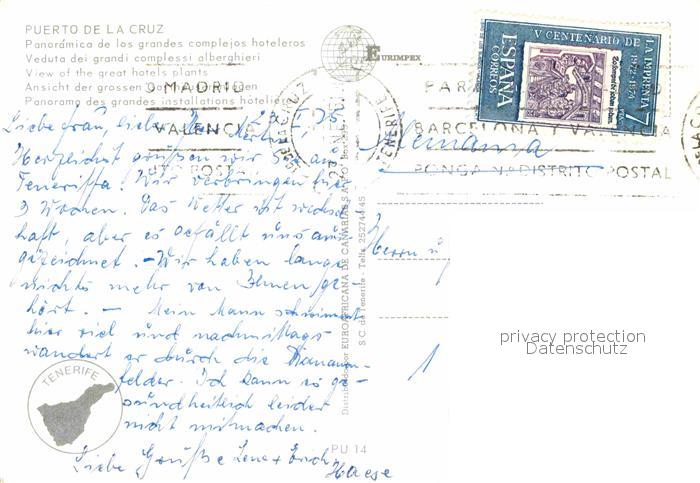 PUERTO DE LA CRUZ
Panorámica de los grandes complejos hoteleros
Veduta dei grandi complessi alberghieri
View of the great hotels plants
Ansicht der grossen
Panorama des grandes installations hotelières
EURIMPEX
MADRID
VALENCIA
POSTAL
PARA
BARCELONA Y VALENCIA
PONGA Nº DISTRITO POSTAL
V CENTENARIO DE LA IMPRENTA
ESPAÑA
CORREOS
7
Liebe Frau, lieber Herr
Herzlichst grüßen wir Sie aus
Teneriffa! Wir verbringen hier
3 Wochen. Das Wetter ist wechsel
haft, aber es gefällt uns aus
gezeichnet. - Wir haben lange
nichts mehr von Ihnen ge-
hört. - Mein Mann schwimmt
hier viel und nachmittags
wandert er durch die Bananen-
felder. Ich kann es ge-
sundheitlich leider
nicht mitmachen.
Liebe Grüße Lena + Erich
Haese
Alemania
Herrn u
TENERIFE
Distribuido por EUROAFRICANA DE CANARIAS S.A.
S.C. de Tenerife - Telfs.
PU 14
privacy protection
Datenschutz